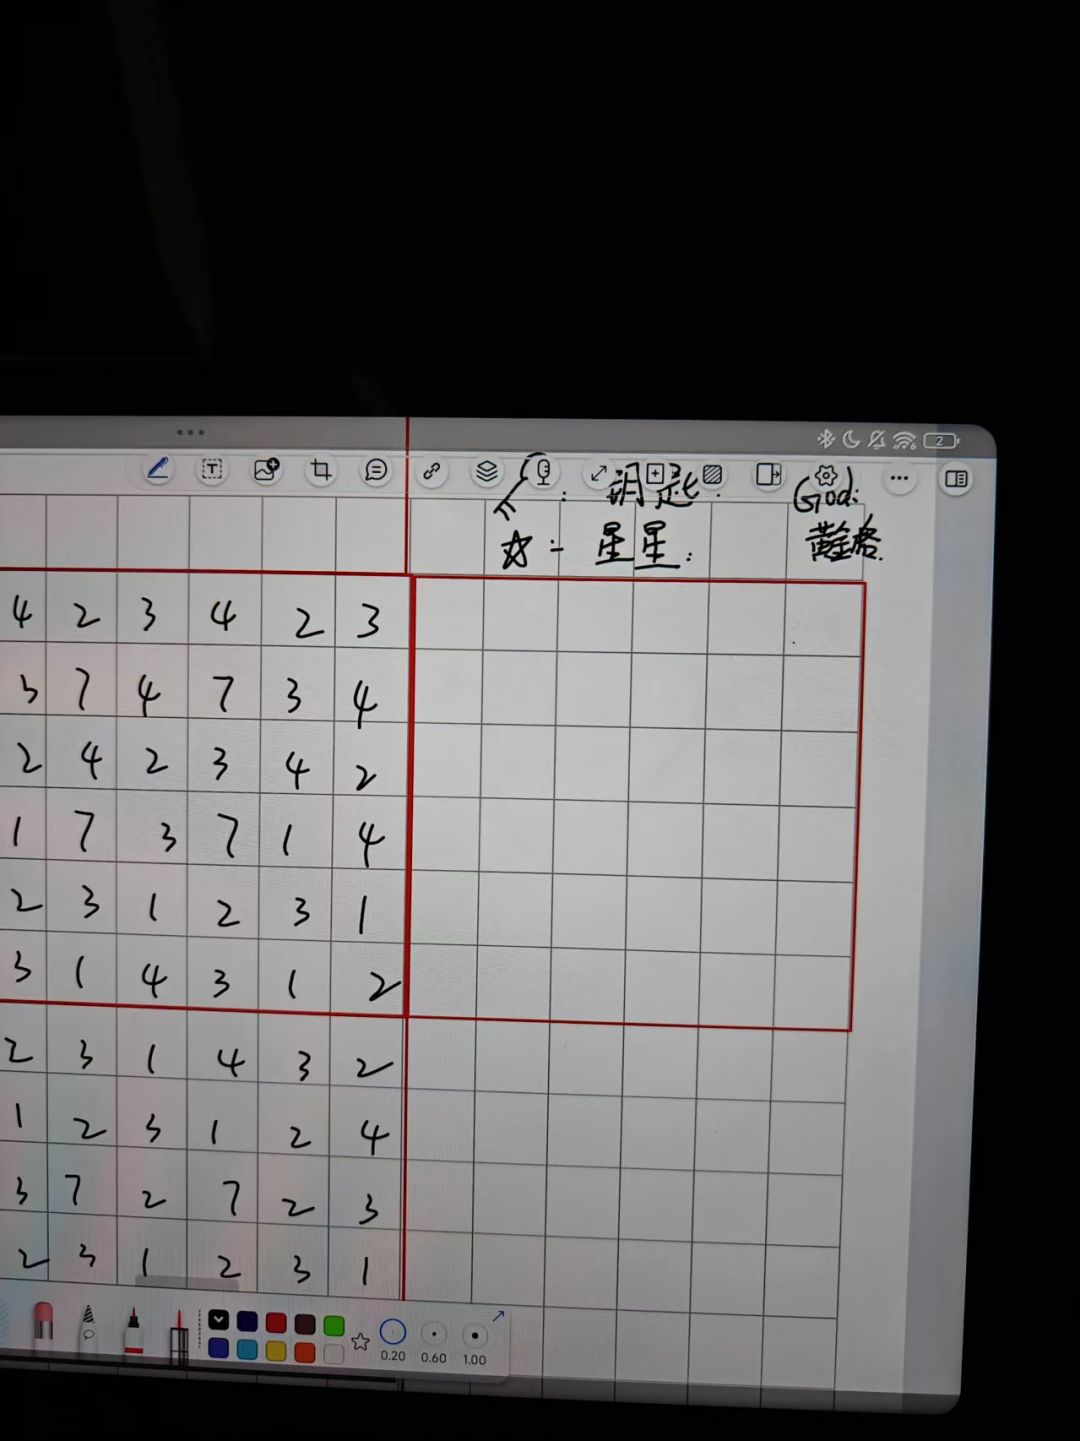 2
钥匙: God:
☆:- 星星: 黄金格.
4 2 3 4 2 3
3 7 4 7 3 4
2 4 2 3 4 2
1 7 3 7 1 4
2 3 1 2 3 1
3 1 4 3 1 2
2 3 1 4 3 2
1 2 3 1 2 4
3 7 2 7 2 3
2 3 1 2 3 1
0.20 0.60 1.00